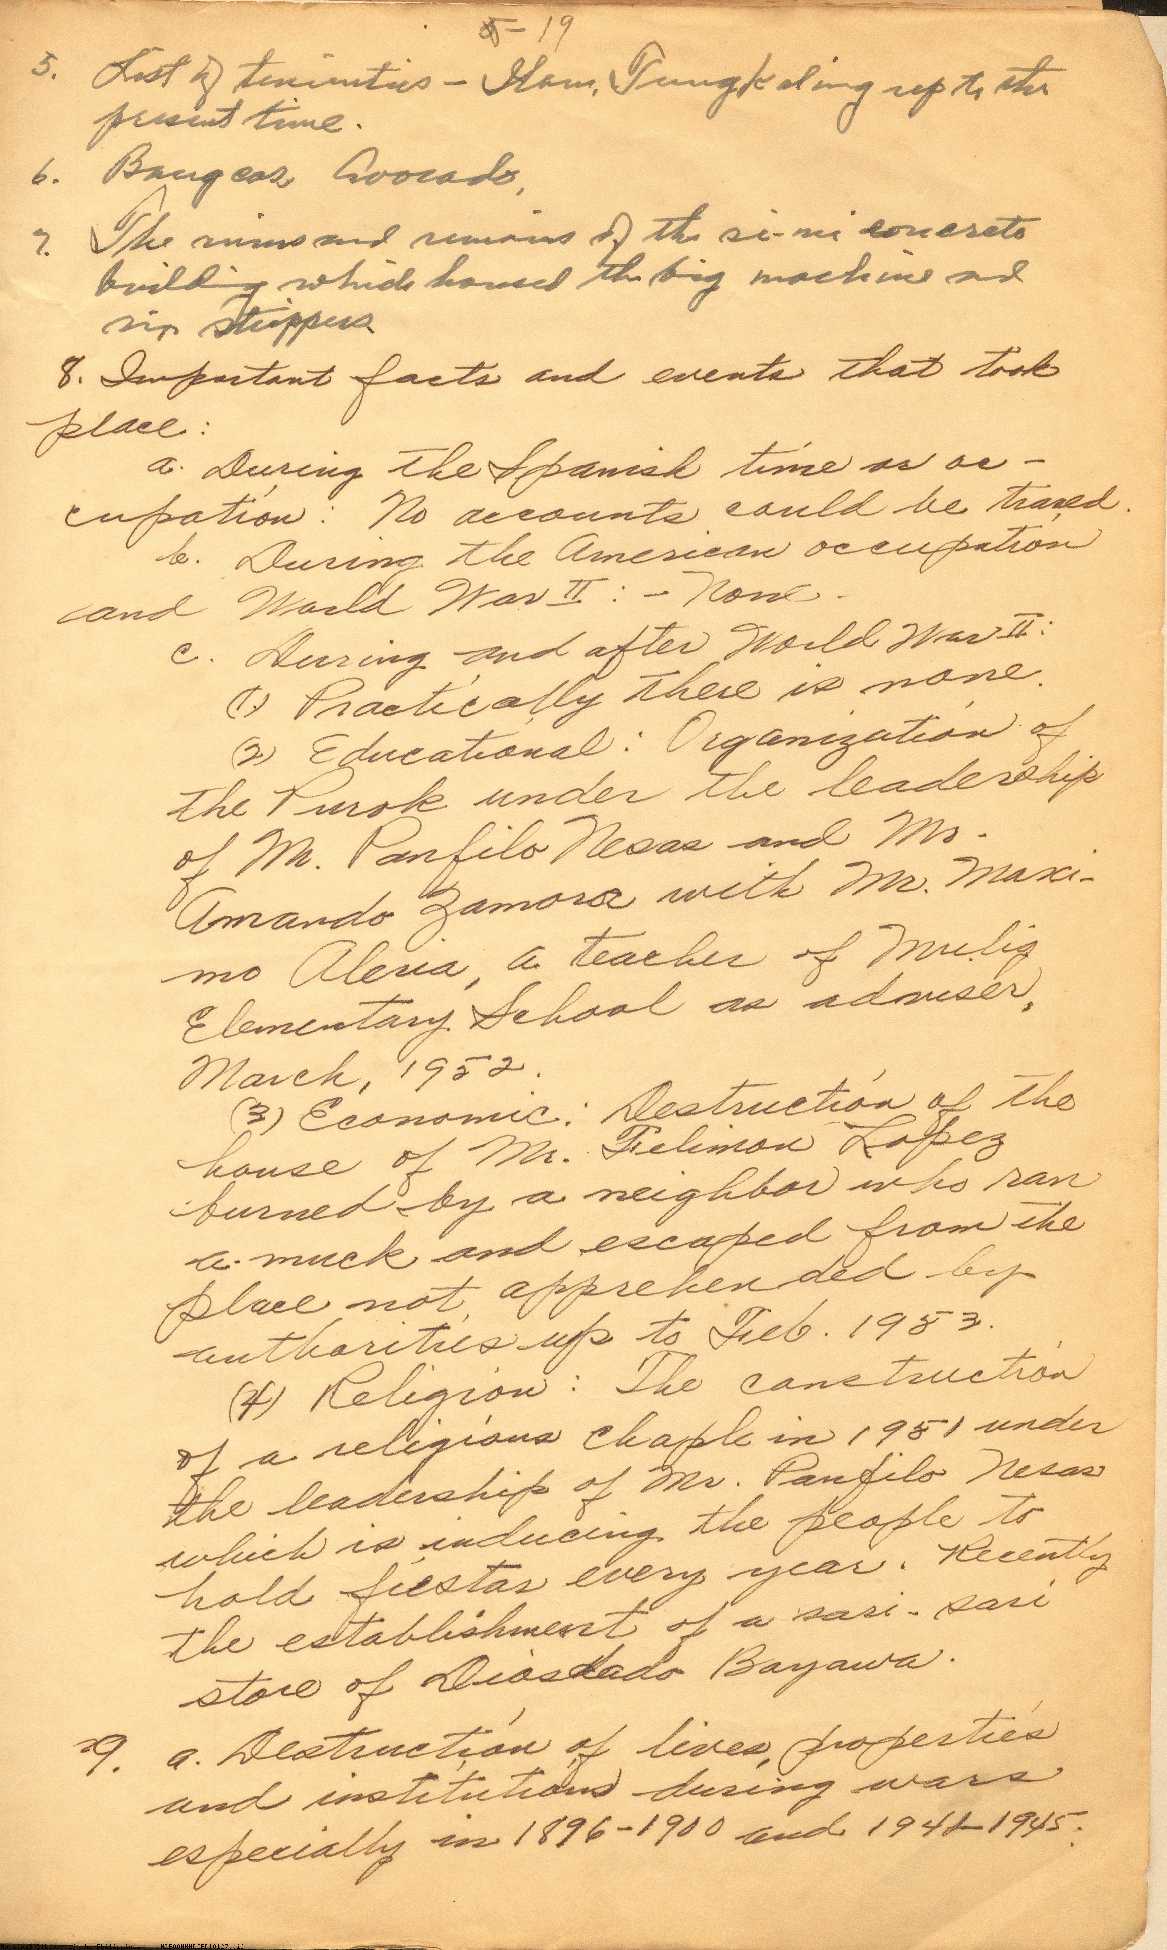 5-19
5. List of tenientes -          up to the
present time.
6. Bangcas Avocado,
7. The ruins and remains of the se-mi concrete
building which housed the big machine and
six strippers.
8. Important facts and events that took
place:
a. During the Spanish time or oc-
cupation: No accounts could be traced.
b. During the American occupation
and World War II: - None.
c. During and after World War II:
(1) Practically there is none.
(2) Educational: Organization of
the Purok under the leadership
of Mr. Panfilo Nesas and Mr.
Amando Zamora with Mr. Maxi-
mo          , a teacher of
Elementary School as adviser,
March, 1952.
(3) Economic: Destruction of the
house of Mr. Felimon Lopez
burned by a neighbor who ran
a-muck and escaped from the
place not apprehended by
authorities up to Feb. 1953.
(4) Religion: The construction
of a religious chaple in 1951 under
the leadership of Mr. Panfilo Nesas
which is inducing the people to
hold fiestas every year. Recently
the establishment of a sari-sari
store of Diosdado Bayawa.
9. a. Destruction of lives, properties
and institutions during wars
especially in 1896-1900 and 1941-1945: